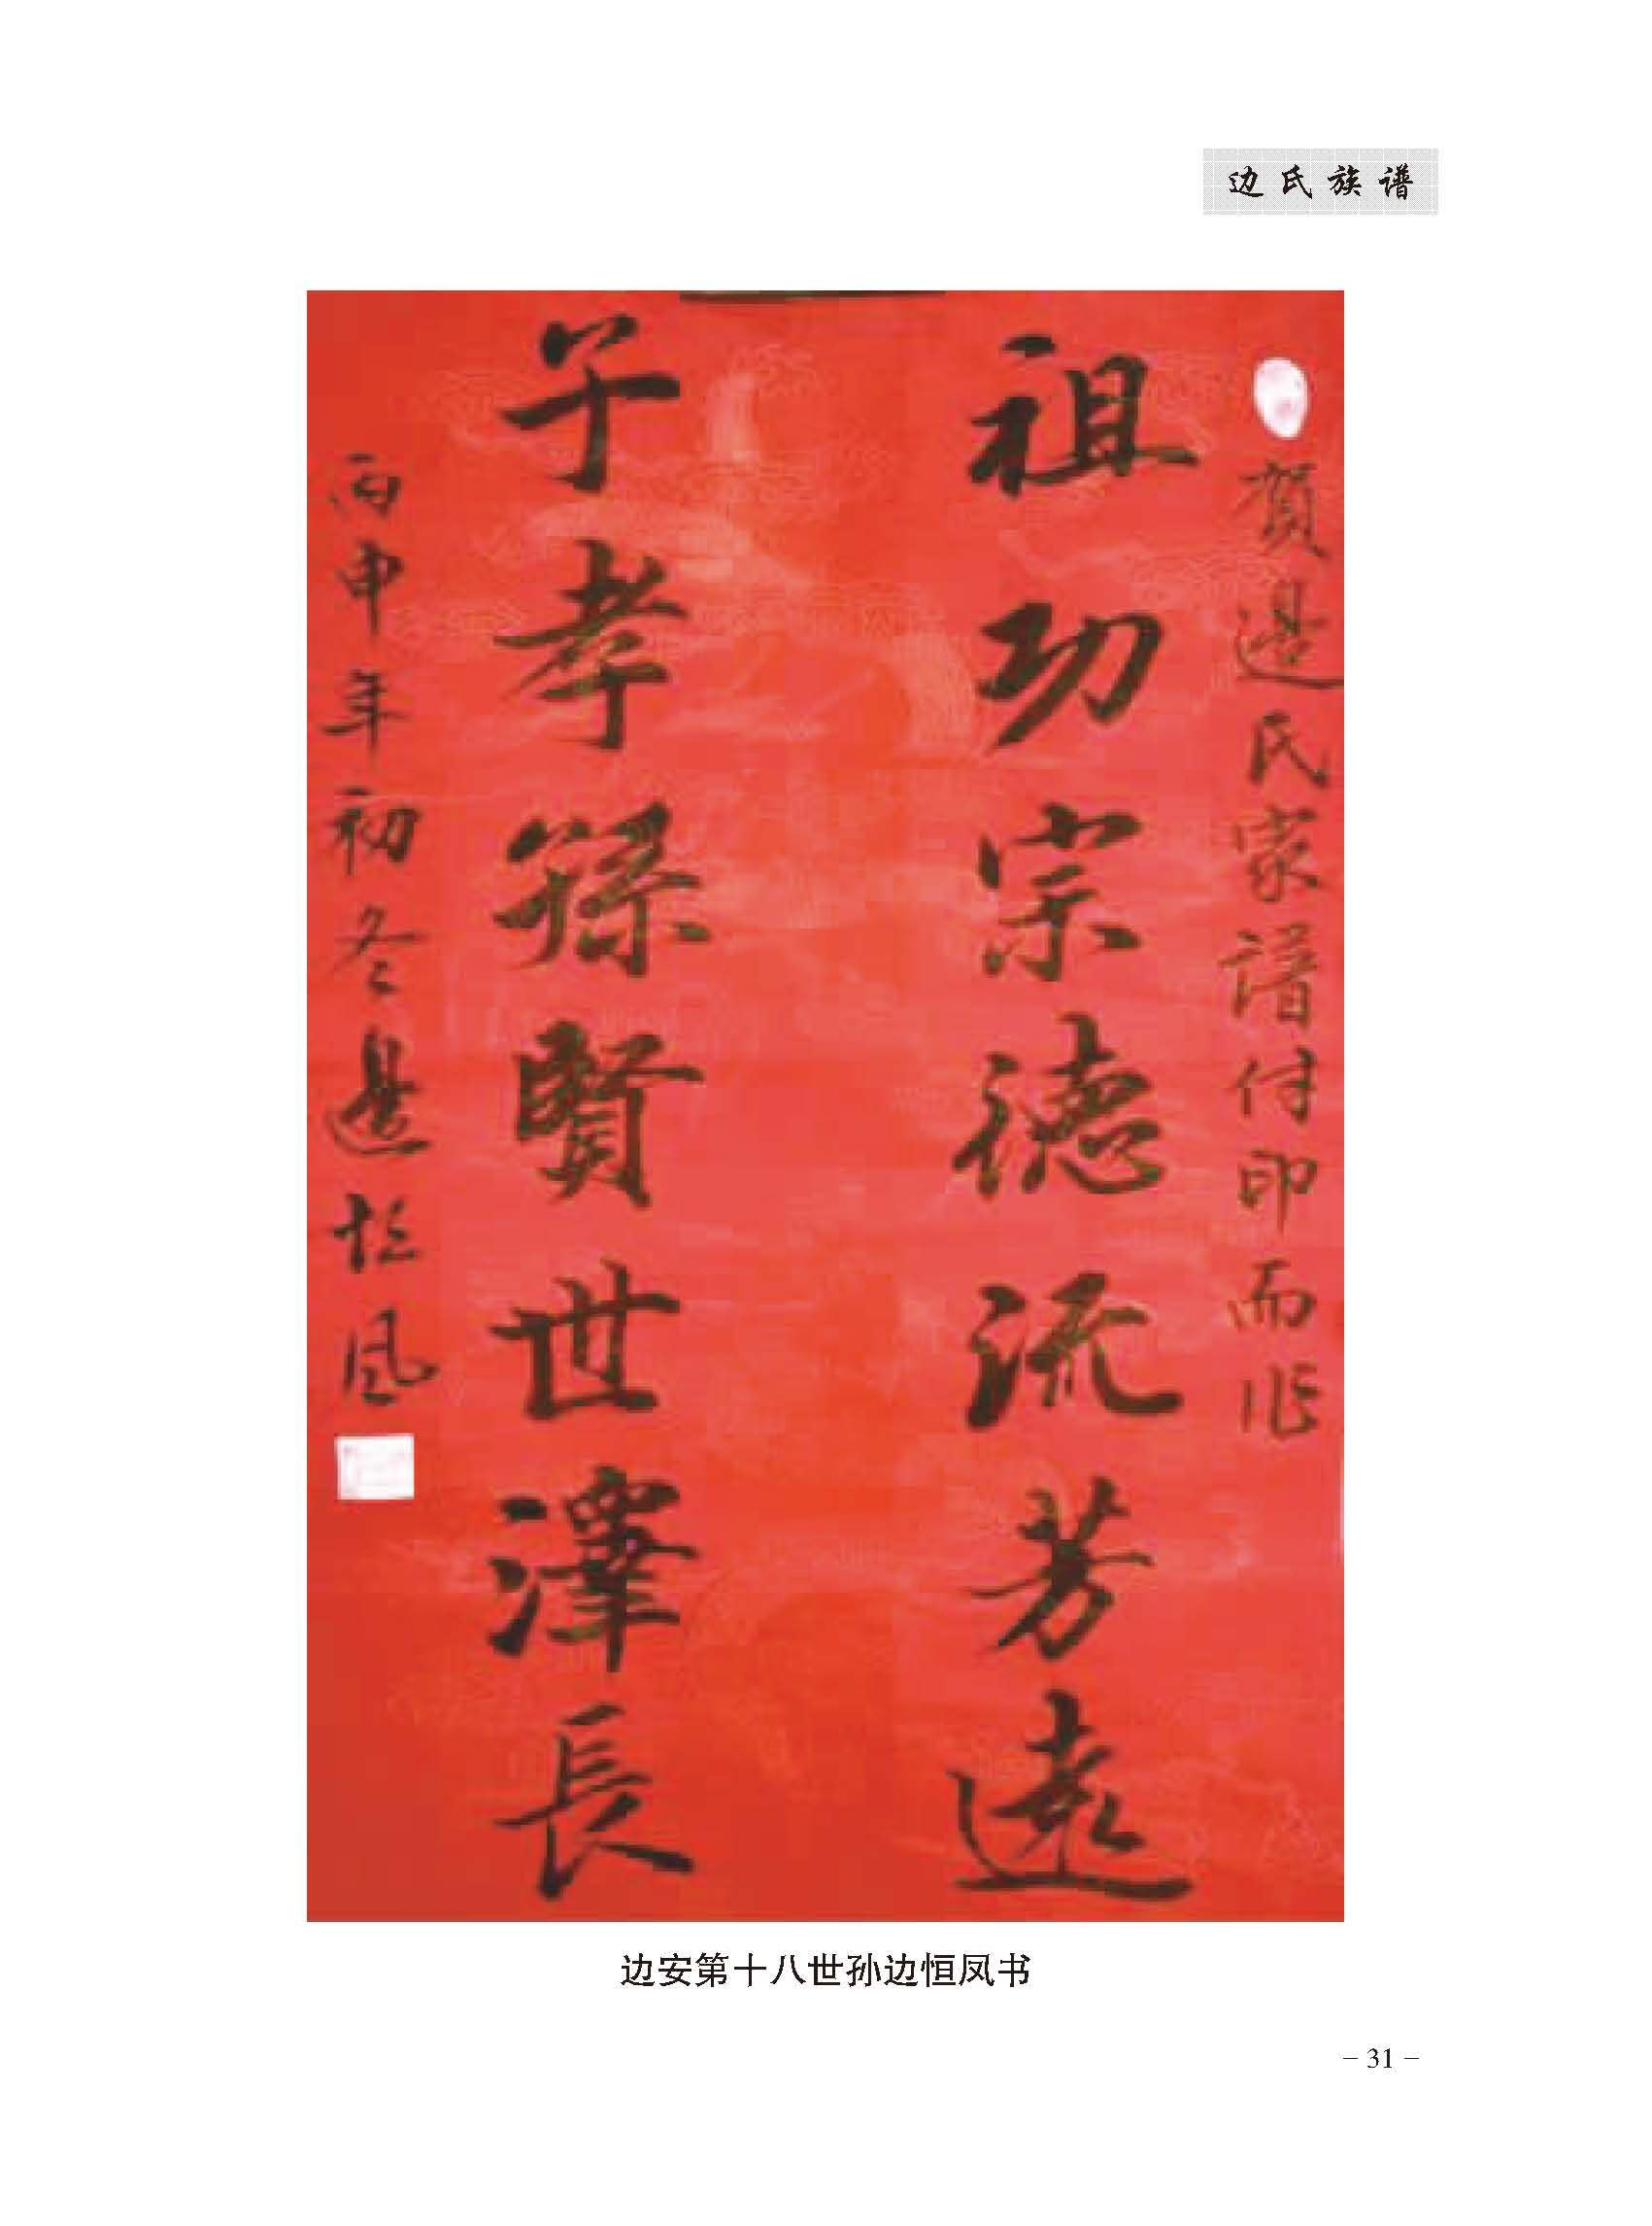 边氏族谱
賀邊氏家譜付印而作
祖功宗德流芳遠
子孝孫賢世澤長
丙申年初冬邊恒凤
边安第十八世孙边恒凤书
– 31 –